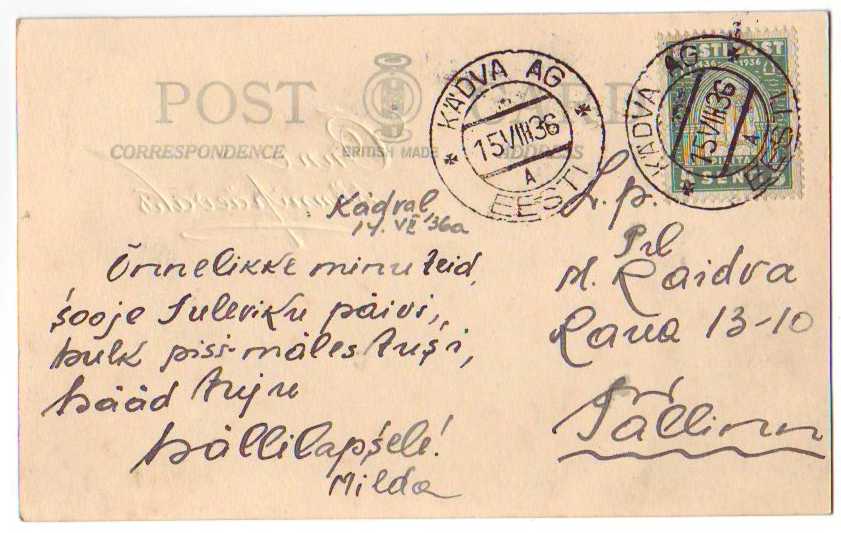 POST CARD
CORRESPONDENCE BRITISH MADE ADDRESS
KÄDVA AG
15 VIII 36
A
EESTI
KÄDVA AG
15 VIII 36
A
EESTI
EESTI POST
1936
SENTI
Kädval,
14. VIII 36a
Õnnelikke minu teid,
sooje Suleviku päivi,
hulk pisi-mälestusi,
hääd tuju
hällilapsele!
Milda
L. p.
Prl
M. Raidva
Raua 13-10
Tallinn